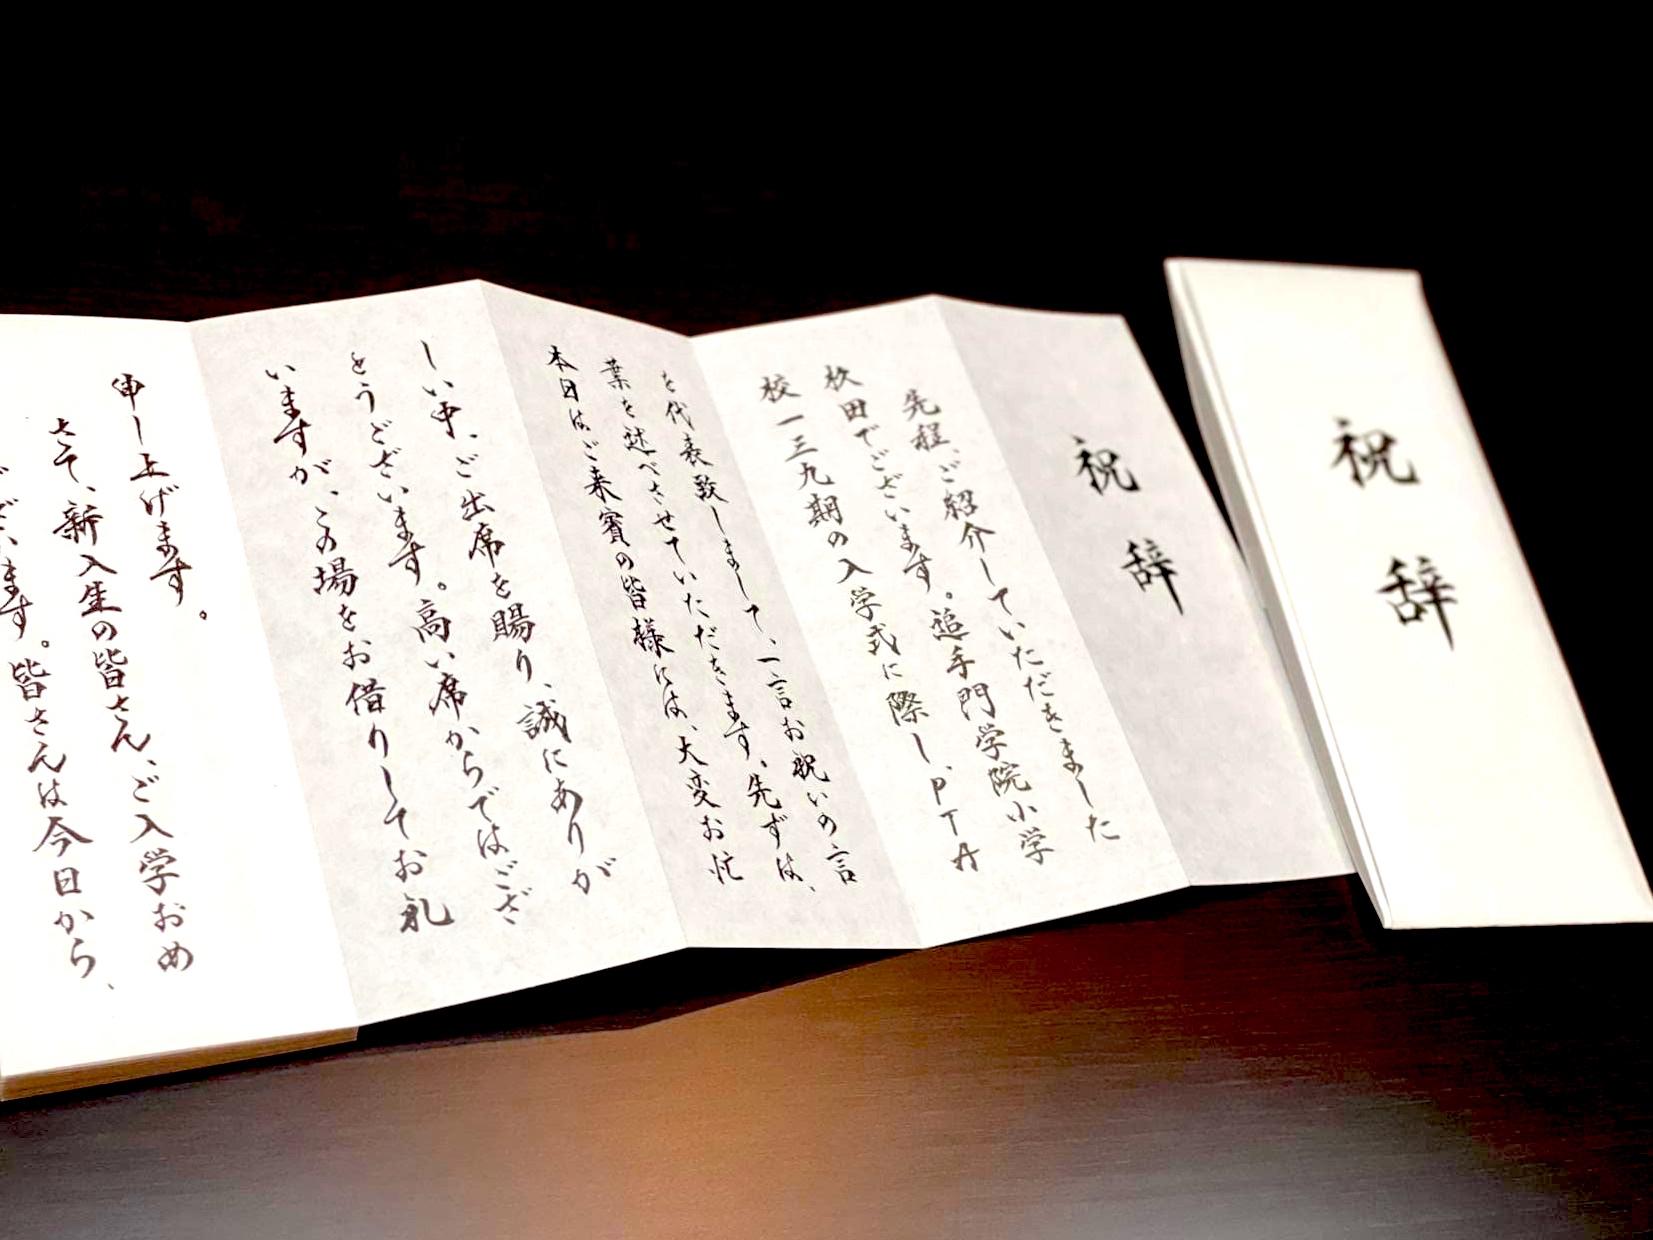 祝辞
祝辞
先程、ご紹介していただきました
杦田でございます。追手門学院小学
校一三九期の入学式に際し、PTA
を代表致しまして、一言お祝いの言
葉を述べさせていただきます。先ずは、
本日はご来賓の皆様には、大変お忙
しい中、ご出席を賜り、誠にありが
とうございます。高い席からではござ
いますが、この場をお借りしてお礼
申し上げます。
さて、新入生の皆さん、ご入学おめ
ございます。皆さんは今日から、